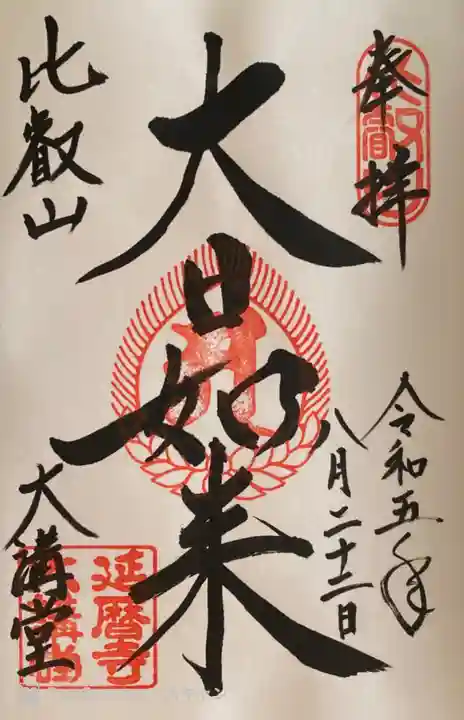 奉拝
令和五年
八月二十二日
大日如来
比叡山
大講堂
延暦寺
大講堂